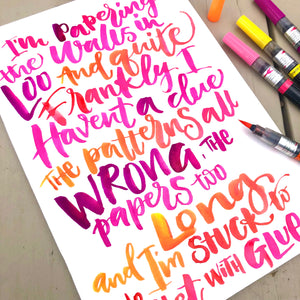 I'm Papering
the walls in
Loo And quite
Frankly I
Havent a clue
THE patterns all
WRONG, THE
papers too
Long
and I'm STUCK to
WITH GLUE